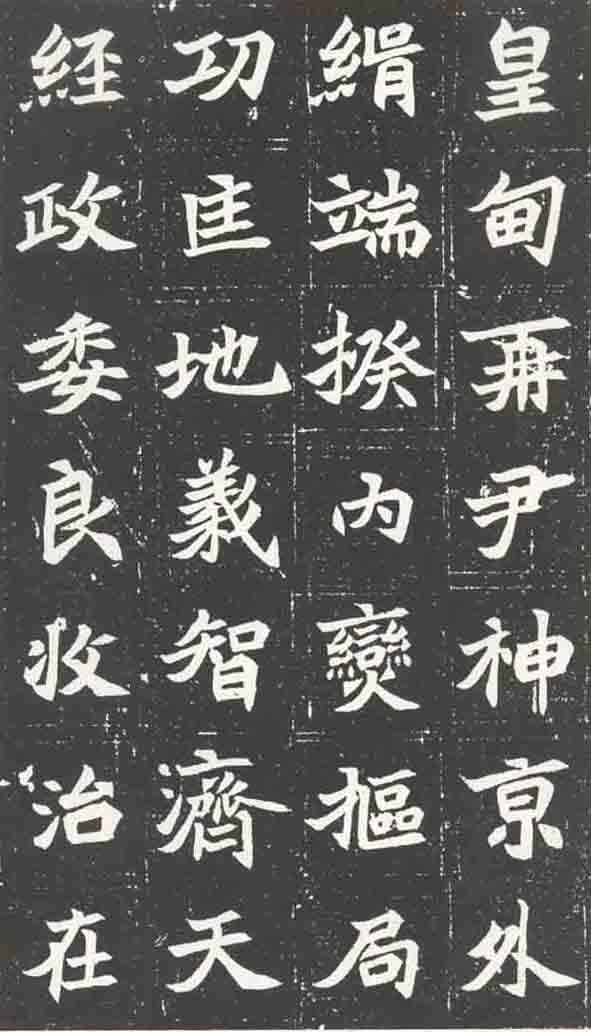 皇甸再尹神京外
緝端揆內燮摳局
功匡地義智濟天
經政委良收治在